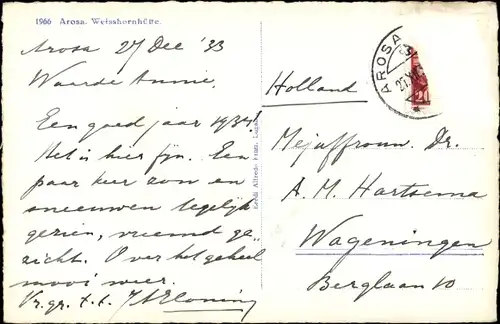 1966 Arosa. Weisshornhütte.
Arosa 27 Dec '33
Waarde Annie,
Een goed jaar 1934!
Het is hier fijn. Een
paar keer zon en
sneeuwen tegelijk
gezien, vreemd ge-
zicht. Over het geheel
mooi weer.
Vr. gr. t. t.
Holland
Mejuffrouw. Dr.
A. M. Hartsema
Wageningen
Berglaan 10
AROSA